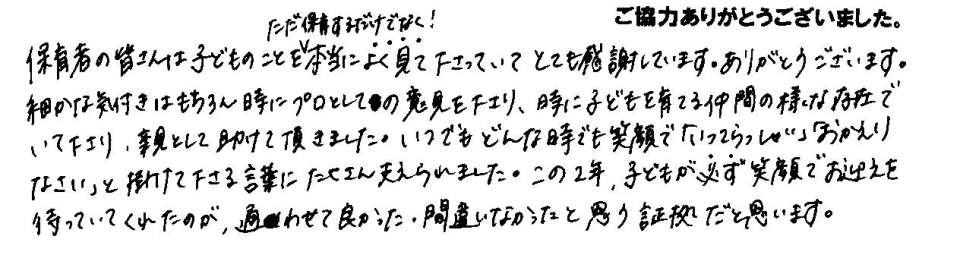 ご協力ありがとうございました。
ただ保育するだけでなく！
保育者の皆さんは子どものことを本当によく見て下さっていてとても感謝しています。ありがとうございます。
細かな気付きはもちろん時にプロとしての意見を下さり、時に子どもを育てる仲間の様な存在で
いて下さり、親として助けて頂きました。いつでもどんな時でも笑顔で「いってらっしゃい」「おかえり
なさい」と掛けて下さる言葉にたくさん支えられました。この2年、子どもが必ず笑顔でお迎えを
待っていてくれたのが、通わせて良かった・間違いなかったと思う証拠だと思います。